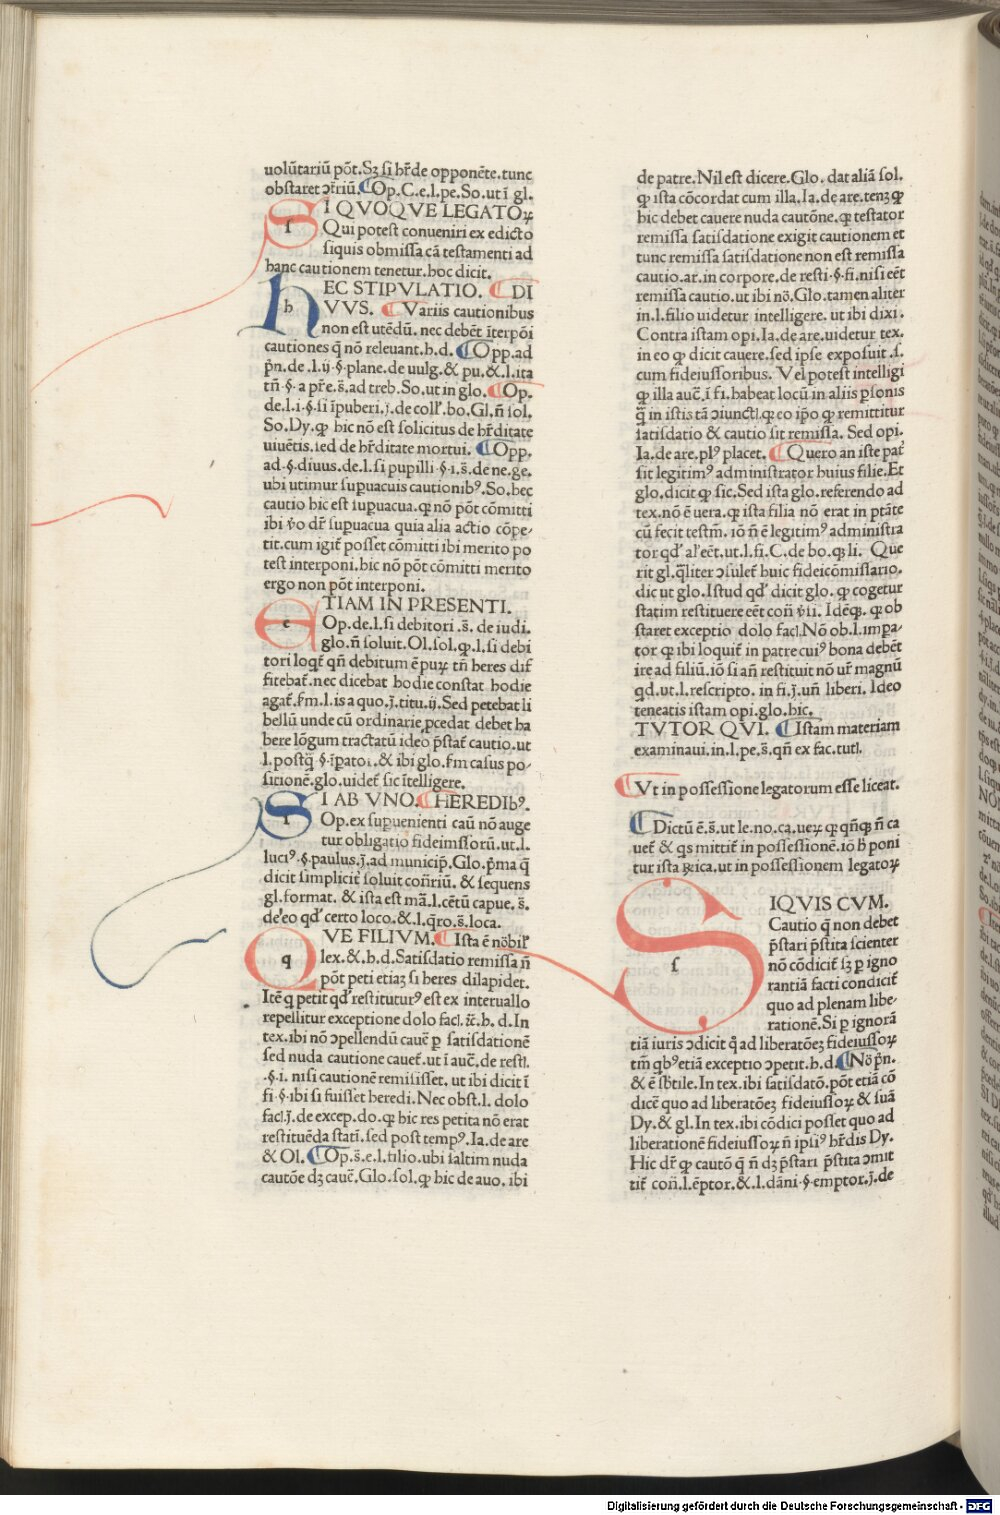 uolūtariū pōt. Sꝫ si hr̄de opponēte. tunc
obstaret ↄtriū. Op. C. e. l. pe. So. ut ī gl.
SI QVOQVE LEGATOꝝ
Qui potest conueniri ex edicto
siquis obmissa cā testamenti ad
hanc cautionem tenetur. hoc dicit.
HEC STIPVLATIO. DI
VVS. Variis cautionibus
non est utēdū. nec debēt īterpōi
cautiones q̄ nō releuant. h. d. Opp. ad
p̄n. de. l. ij. §. plane. de uulg. & pu. &. l. ita
tn̄. §. a pr̄e. s̄. ad treb. So. ut in glo. Op.
de. l. i. §. si īpuberi. j. de coll'. bo. Gl. n̄ sol.
So. Dy. ꝙ hic nō est solicitus de hr̄ditate
uiuētis. sed de hr̄ditate mortui. Opp.
ad. §. diuus. de. l. si pupilli. §. i. s̄. de ne. ge.
ubi utimur supuacuis cautionibꝰ. So. hec
cautio hic est supuacua. ꝙ nō pōt cōmitti
ibi v̄o dr̄ supuacua quia alia actio cōpe-
tit. cum igit̄ posset cōmitti ibi merito po
test interponi. hic nō pōt cōmitti merito
ergo non pōt interponi.
ETIAM IN PRESENTI.
Op. de. l. si debitori. s̄. de iudi.
glo. n̄ soluit. Ol. sol. ꝙ. l. si debi
tori loqt̄ qn̄ debitum ē puꝝ tn̄ heres dif
fitebat̄. nec dicebat hodie constat hodie
agat̄. fm̄. l. is a quo. j. titu. ij. Sed petebat li
bellū unde cū ordinarie ꝓcedat debet ha
bere lōgum tractatū ideo p̄stat̄ cautio. ut
l. postq̄. §. īpatoꝛ. & ibi glo. fm̄ casus po-
sitionē. glo. uidet̄ sic ītelligere.
SI AB VNO. HEREDIbꝰ.
Op. ex supuenienti caū nō auge
tur obligatio fideiussorū. ut. l.
luciꝰ. §. paulus. j. ad municip̄. Glo. p̄ma q̄
dicit simplicit̄ soluit cōn̄riū. & sequens
gl. format. & ista est mā. l. cētū capue. s̄.
de eo qd' certo loco. &. l. q̄ro. s̄. loca.
QVE FILIVM. Ista ē nōbil'
lex. &. h. d. Satisdatio remissa n̄
pōt peti etiaꝫ si heres dilapidet.
Itē q̄ petit qd' restituturꝰ est ex interuallo
repellitur exceptione dolo facl. īc̄. h. d. In
tex. ibi nō ↄpellendū cauē p satisdationē
sed nuda cautione cauet̄. ut ī auc̄. de restl.
§. i. nisi cautionē remisisset. ut ibi dicit ī
fi. §. ibi si fuisset heredi. Nec obst. l. dolo
facl. j. de excep. do. ꝙ hic res petita nō erat
restituēda statī. sed post tempꝰ. Ia. de are
& Ol. Op. s̄. e. l. filio. ubi saltim nuda
cautōe dꝫ cauē. Glo. sol. ꝙ hic de auo. ibi
de patre. Nil est dicere. Glo. dat aliā sol.
ꝙ ista cōcordat cum illa. Ia. de are. tenꝫ ꝙ
hic debet cauere nuda cautōne. ꝙ testator
remissa satisdatione exigit cautionem et
tunc remissa satisdatione non est remissa
cautio. ar. in corpore. de resti. §. fi. nisi eēt
remissa cautio. ut ibi nō. Glo. tamen aliter
in. l. filio uidetur intelligere. ut ibi dixi.
Contra istam opi. Ia. de are. uidetur tex.
in eo ꝙ dicit cauere. sed ipse exposuit. s.
cum fideiussoribus. Vel potest intelligi
ꝙ illa auc̄. ī fi. habeat locū in aliis psonis
q̄ in istis tā ↄiunctl. ꝙ eo ip̄o ꝙ remittitur
satisdatio & cautio sit remissa. Sed opi.
Ia. de are. plꝰ placet. Quero an iste pat̄
sit legitimꝰ administrator huius filie. Et
glo. dicit ꝙ sic. Sed ista glo. referendo ad
tex. nō ē uera. ꝙ ista filia nō erat in ptāte
cū fecit testm̄. iō n̄ ē legitimꝰ administra
tor qd' al' eēt. ut. l. fi. C. de bo. ꝙ li. Que
rit gl. q̄liter ↄsulet̄ huic fideicōmissario.
dic ut glo. Istud qd' dicit glo. ꝙ cogetur
statim restituere eēt con̄ v̄ii. Idēꝙ. ꝙ ob
staret exceptio dolo facl. Nō ob. l. impa-
tor ꝙ ibi loquit̄ in patre cuiꝰ bona debēt
ire ad filiū. iō si an̄ restituit nō ur̄ magnū
qd. ut. l. rescripto. in fi. j. un̄ liberi. Ideo
teneatis istam opi. glo. hic.
TVTOR QVI. Istam materiam
examinaui. in. l. pe. s̄. qn̄ ex fac. tutl.
Vt in possessione legatorum esse liceat.
Dictū ē. s̄. ut le. no. ca. ueꝝ ꝙ qn̄qꝫ n̄ ca
uet̄ & qs mittit̄ in possessionē. iō h̄ poni
tur ista ꝶica. ut in possessionem legatoꝝ
SIQVIS CVM.
Cautio q̄ non debet
p̄stari p̄stita scienter
nō cōdicit̄ sꝫ p igno
rantiā facti condicit̄
quo ad plenam libe-
rationē. Si p ignorā
tiā iuris ↄdicit q̄ ad liberatōeꝫ fideiussoꝝ
tm̄ qbꝰ etiā exceptio ↄpetit. h. d. Nō p̄n.
& ē sb̄tile. In tex. ibi satisdatō. pōt etiā cō
dicē quo ad liberatōeꝫ fideiussoꝝ & suā
Dy. & gl. In tex. ibi cōdici posset quo ad
liberationē fideiussoꝝ n̄ ipsiꝰ hr̄dis Dy.
Hic dr̄ ꝙ cautō q̄ n̄ dꝫ p̄stari p̄stita ↄmit
tit̄ con̄. l. ēptor. &. l. dāni. §. emptor. j. de
Digitalisierung gefördert durch die Deutsche Forschungsgemeinschaft - DFG